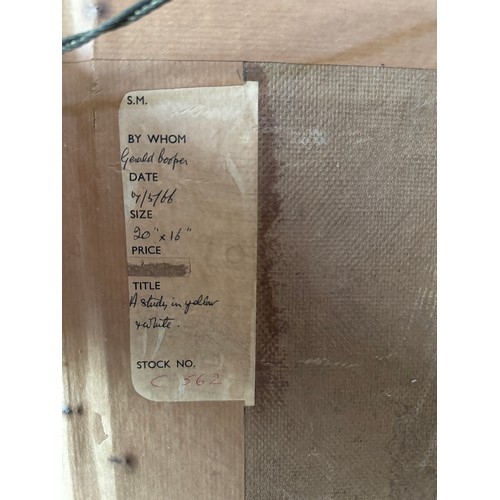 S.M.
BY WHOM
Gerald Cooper
DATE
9/5/66
SIZE
20" x 16"
PRICE
TITLE
A study in yellow
& white.
STOCK NO.
C 562